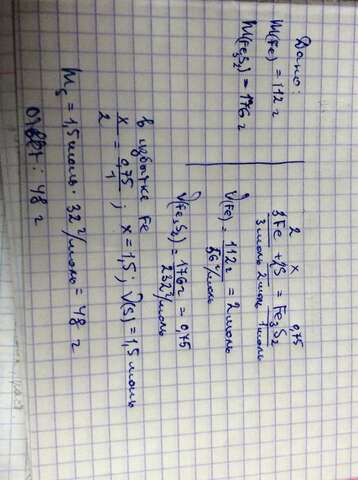 Дано:
m(Fe) = 112 г
m(Fe₃S₂) = 176 г
2 x 0,75
3Fe + 2S = Fe₃S₂
3 моль 2 моль 1 моль
ν(Fe) = 112 г / 56 г/моль = 2 моль
ν(Fe₃S₂) = 176 г / 232 г/моль = 0,75
в избытке Fe
x/2 = 0,75/1 ; x = 1,5 ; ν(S) = 1,5 моль
m s = 1,5 моль · 32 г/моль = 48 г
Ответ: 48 г